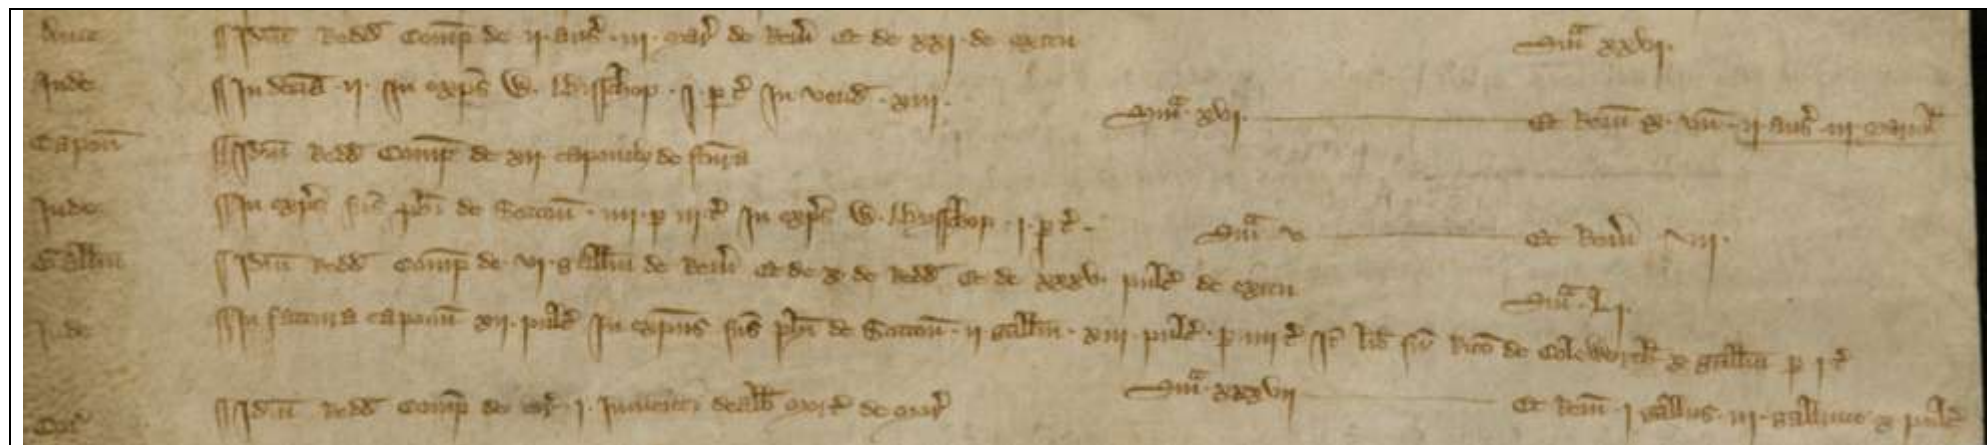 Auce Idem redd Comp de ij auc iij mar de Rem Et de xxi de exitu Sma xxvi.
Inde In decia ij In exps W. Bysschop j p t In vend xiij Sma xvi. Et Rem ij auc iij mariol
Capon Idem redd Comp de xij caponib de firma
Inde In exps de Sotton iiij p iij t In exps W. Bysschop j p t Sma v Et Rem vij.
Gallin Idem redd Comp de vi gallin de Rem Et de x de redd Et de xxxv pulc de exitu Sma Li.
Inde In factura caponu xij pulc In expns de Sotton ij gallin xiij pulc p iiij t It lib Rico de Coleworth x gallin p j t
Sma xxxvij Et Rem j gallus iij galline x pulc
Cor Idem redd Comp de cor j de mor